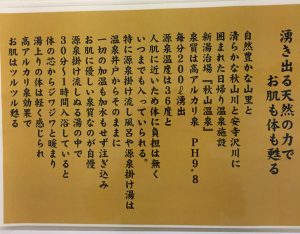 湧き出る天然の力で
お肌も体も甦る
自然豊かな山里と
清らかな秋山川と安寺沢川に
囲まれた日帰り温泉施設
新湯治場『秋山温泉』
泉質は高アルカリ泉 PH9.8
毎分200ℓ湧出
源泉温度は36度と
人肌に近いため体に負担は無く
いつまでも入っていられる。
特に源泉掛け流し風呂や源泉掛け湯は
温泉井戸からそのままに
一切の加温も加水もせず注ぎ込み
お肌に優しい泉質なのが自慢
源泉掛け流しぬる湯の中で
30分～1時間入浴していると
体の芯からジワジワと暖まり
湯上りの体は軽く感じられ
高アルカリ泉効果で
お肌はツルツル甦る